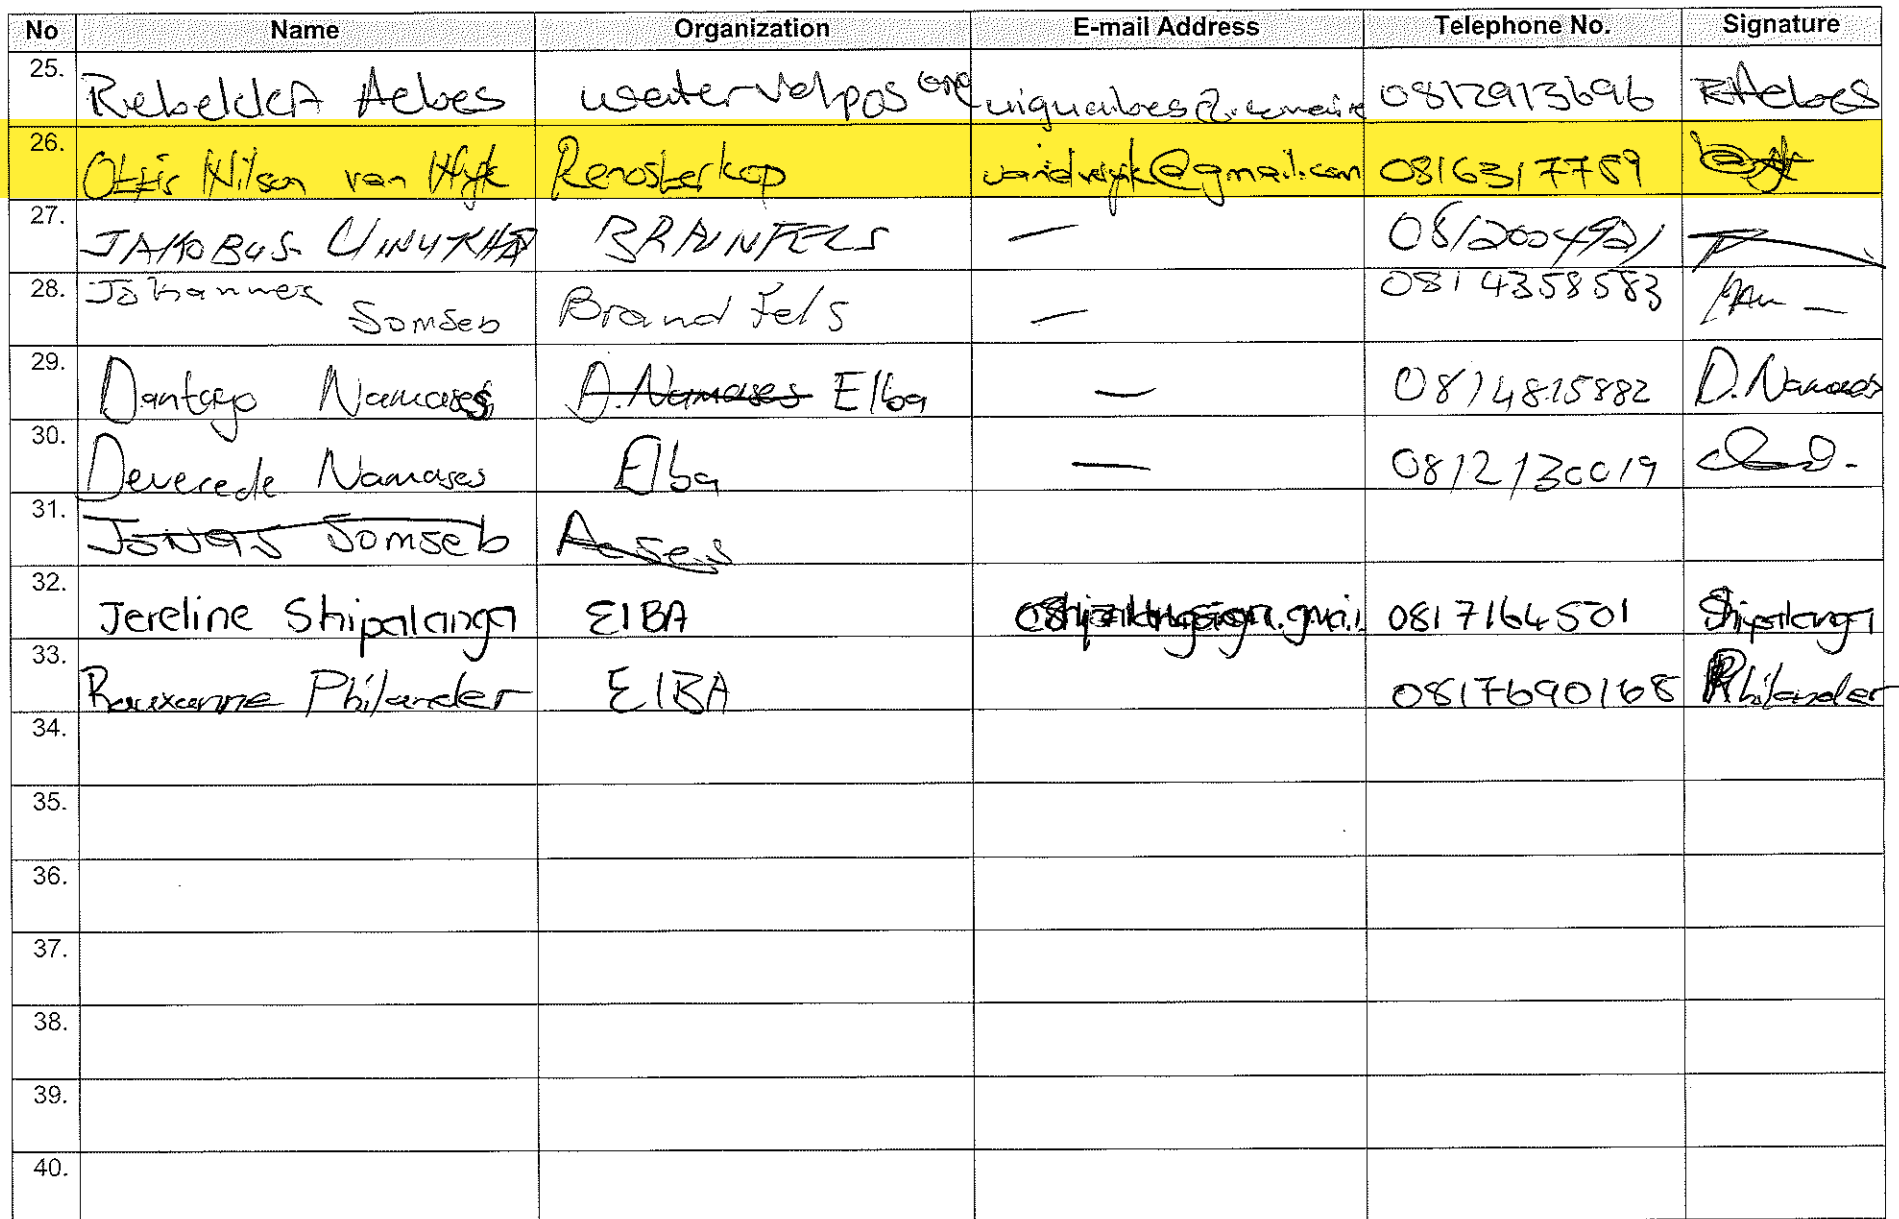 No Name Organization E-mail Address Telephone No. Signature
25. RebeldkA Aebes watervalpos 0812913696 RAebes
26. Wilson van Wyk Renosterkop 0816317789
27. JAKOBUS BRAINFELS — 0812004921
28. Johannes Somseb Brand Fels — 0814358583
29. Dantago Namases D. Namases Elba — 0814815882 D. Namases
30. Deverede Namases Elba — 0812130019
31. Jonas Somseb
32. Jereline Shipalanga ElBA 0817164501 Shipalanga
33. Rauxanne Philander ElBA 0817690168 Philander
34.
35.
36.
37.
38.
39.
40.